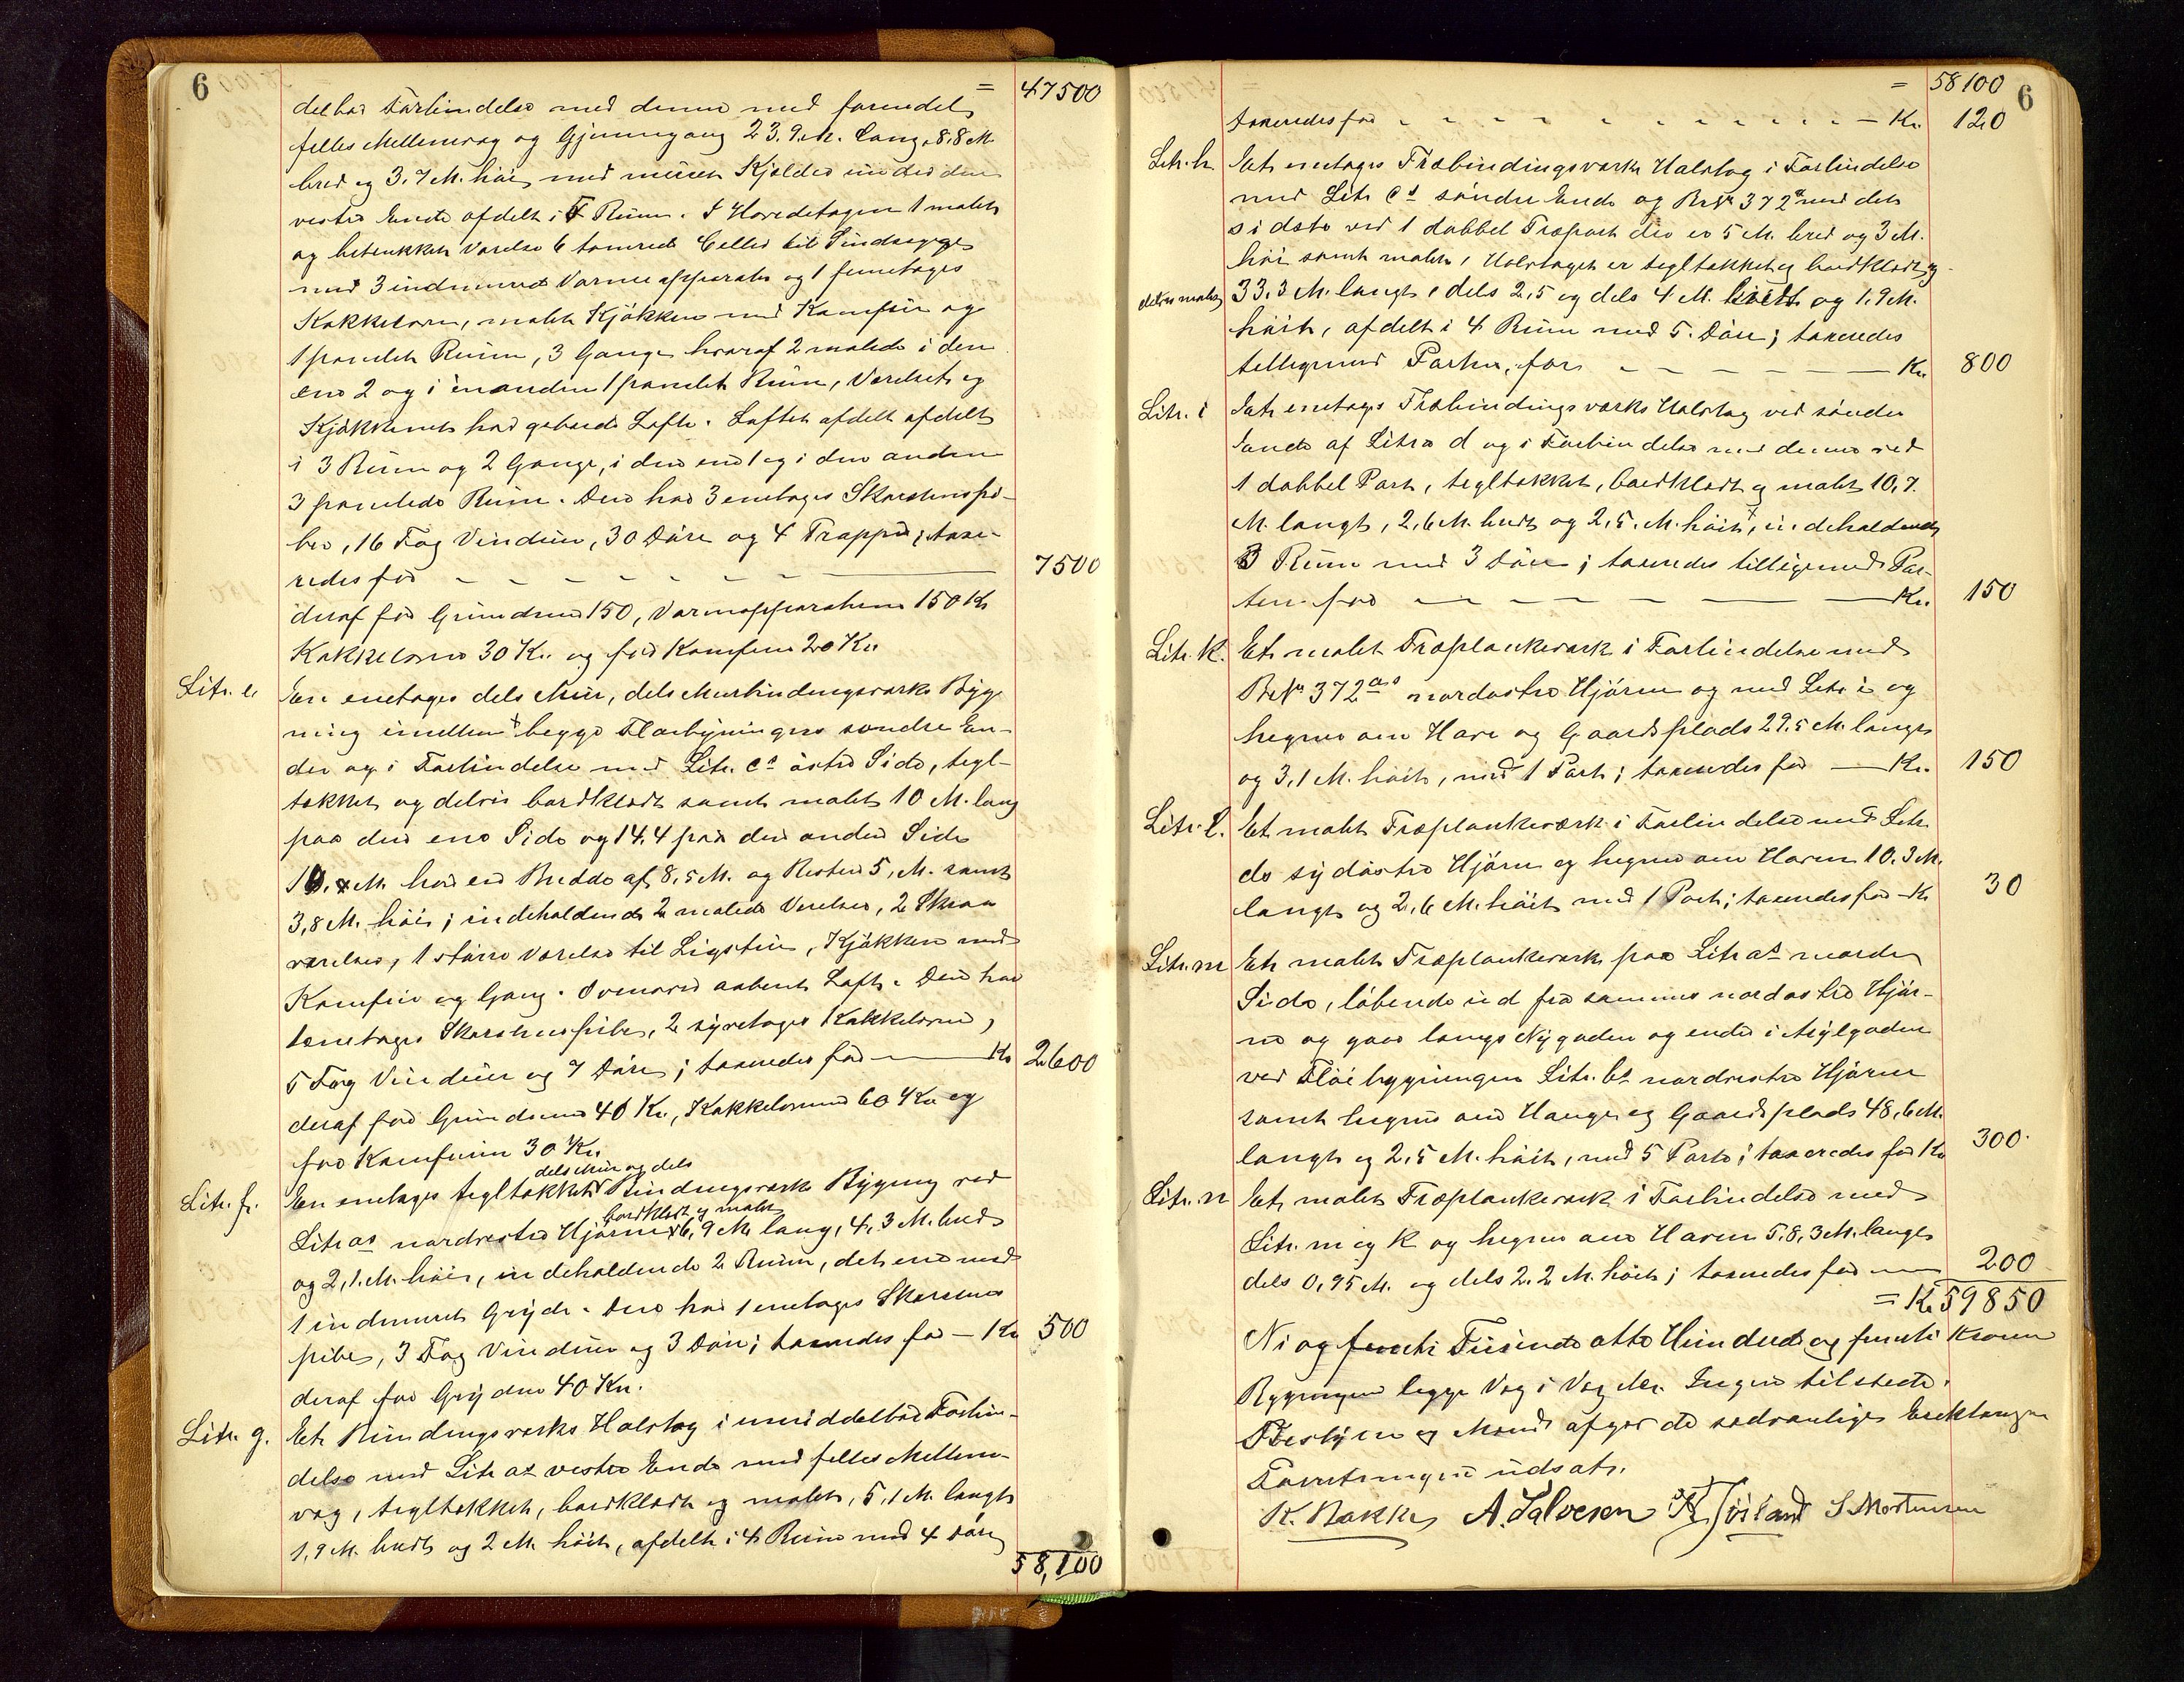 6
= 47500
delbar Forbindelse med denne med foruendet
felles Mellemvæg og Gjennemgang 23.9 M. lang, 8.8 M.
bred og 3.7 M. høi, med muret Kjælder under den
vestre Ende afdelt i 5 Rum. I Hovedetagen 1 malet
og betrukket Værelse 6 tømrede Celler til Sindssyge
med 3 indmurede Varmeapparater og 1 femetages
Kakkelovn, malet Kjøkken med Komfur og
1 panelet Rum, 3 Gange hvoraf 2 malede i den
ene 2 og i en anden 1 panelet Rum, Værelset og
Kjøkkenet har gibsede Lofte. Loftet afdelt afdelt
i 3 Rum og 2 Gange, i den ene 1 og i den anden
3 panelede Rum. Den har 3 enetages Skorstenspi-
ber, 16 Fag Vinduer, 30 Døre og 4 Trapper; taxe-
redes for 7500
deraf for Grundmur 150, Varmeapparaterne 150 Kr
Kakkelovne 30 Kr. og for Komfuren 20 Kr.
Litr. e. En enetages dels Mur, dels Murbindingsværks Byg
ning imellem begge Fløibygningers søndre En-
der og i Forbindelse med Litr. cs østre Side, tegl-
tækket og delvis bordklædt samt malet 10 M. lang
paa den ene Side og 14.4 paa den anden Side
10.4 M. har en Bredde af 8,5 M. og Resten 5, M. samt
3,8 M. høi; indeholdende 2 malede Værelser, 2 Skraa
værelser, 1 større Værelse til Ligstue, Kjøkken med
Komfur og Gang. Ovenover aabent Loft. Den har
1 enetages Skorstenspibe, 2 syvetages Kakkelovne,
5 Fag Vinduer og 7 Døre; taxeredes for Kr 2600
deraf for Grundmur 40 Kr., Kakkelovne 60 Kr og
for Komfuren 30 Kr.
dels Mur og dels
Litr. f. En enetages tegltækket Bindingsværks Bygning ved
bordklædt og malet
Litr as nordvestre Hjørne 6,9 M. lang, 4,3 M. bred
og 2,1. M. høi, indeholdende 2 Rum, det ene med
1 indmuret Gryde. Den har 1 enetages Skorstens
pibe, 3 Fag Vinduer og 3 Døre; taxeredes for Kr 500
deraf for Gryden 40 Kr.
Litr. g. Et Bindingsværks Halvtag i umiddelbar Forbin-
delse med Litr as vestre Ende med felles Mellem-
væg, tegltækket, bordklædt og malet, 5,1 M. langt
1,9 M. bredt og 2 M. høit, afdelt i 4 Rum med 4 Døre
58,100
6
= 58100
taxeredes for Kr. 120
Litr. h Et enetages Træbindingsværks Halvtag i Forbindelse
med Litr cs søndre Ende og BrNr 372a med det
sidste ved 1 dobbel Træport der er 5 M. bred og 3 M.
høi samt malet, Halvtaget er tegltækket og bordklædt og
delvis malet, 33.3 M. langt, dels 2,5 og dels 4 M. bredt og 1.9 M.
høit, afdelt i 4 Rum med 5. Døre; taxeredes
tilligemed Porten, for Kr. 800
Litr. i Et enetages Træbindingsværks Halvtag ved søndre
Ende af Litra d og i Forbindelse med denne ved
1 dobbel Port, tegltækket, bordklædt og malet 10,7.
M. langt, 2,6 M. bredt og 2,5. M. høit, indeholdende
3 Rum med 3 Døre; taxeredes tilligemed Por-
ten for Kr. 150
Litr. k. Et malet Træplankeværk i Forbindelse med
BrNr 372as nordøstre Hjørne og med Litr i og
hegner om Have og Gaardsplads 29.5 M. langt
og 3,1 M. høit, med 1 Port; taxeredes for Kr. 150
Litr. l. Et malet Træplankeværk i Forbindelse med Litr.
ds sydøstre Hjørne og hegner om Haven 10.3 M.
langt og 2,6 M. høit med 1 Port; taxeredes for Kr 30
Litr. m Et malet Træplankeværk paa Litr as nordre
Side, løbende ud fra sammes nordøstre Hjør-
ne og gaar langs Nygaden og ender i Asylgaden
ved Fløibygningen Litr. bs nordvestre Hjørne
samt hegner om Hauge og Gaardsplads 48,6 M.
langt og 2,5 M. høit, med 5 Porte; taxeredes for Kr 300.
Litr. n Et malet Træplankeværk i Forbindelse med
Litr. m og k og hegner om Haven 58,3 M. langt
dels 0,95 M. og dels 2.2 M. høit; taxeredes for 200
= Kr 59850
Ni og femti Tusinde otte Hundrede og femti Kroner
Bygningen begge Vag i Vag Nei. Ingen tilstede.
Bestyrer og Mand afgav de sædvanlige Erklæringer
Forretningen udsat.
K. Bakke A. Salvesen K. Tjøiland S Mortensen